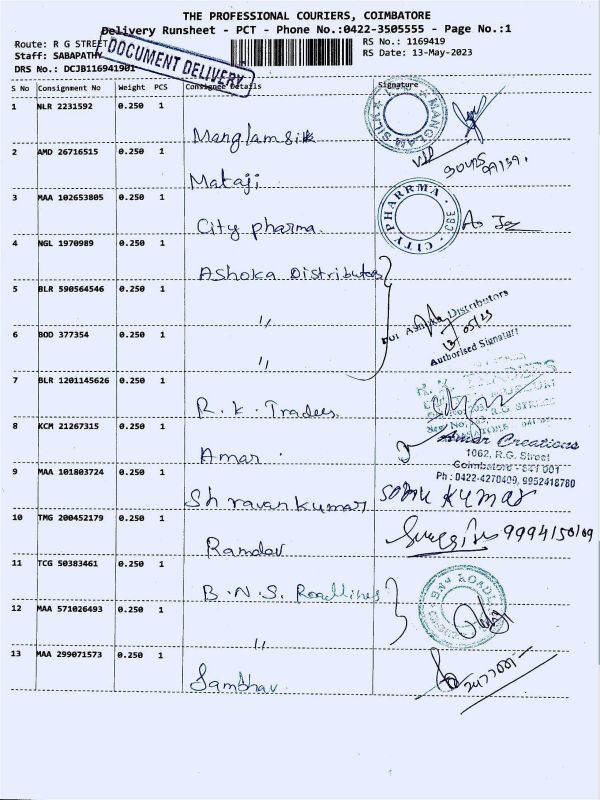 THE PROFESSIONAL COURIERS, COIMBATORE
Delivery Runsheet - PCT - Phone No.:0422-3505555 - Page No.:1
Route: R G STREET
RS No.: 1169419
Staff: SABAPATHY
RS Date: 13-May-2023
DRS No.: DCJB116941901
DOCUMENT DELIVERY
S No Consignment No Weight PCS Consignee Details Signature
1 NLR 2231592 0.250 1 Manglam Silk
MANGLAM SILK
2 AMD 26716515 0.250 1 Mataji
3 MAA 102653805 0.250 1 City pharma.
CITY PHARRMA CBE
4 NGL 1970989 0.250 1 Ashoka Distributors
5 BLR 590564546 0.250 1 "
For Ashoka Distributors
13/05/23
Authorised Signatory
6 BOD 377354 0.250 1 "
7 BLR 1201145626 0.250 1 R.K. Traders
TRADERS
R.G. STREET
8 KCM 21267315 0.250 1 Amar.
Amar Creations
1062, R.G. Street
Coimbatore - 641 001
Ph : 0422-4270409, 9952418780
9 MAA 101803724 0.250 1 Shravan kumar
SONU KUMAR
10 TMG 200452179 0.250 1 Ramdev
11 TCG 50383461 0.250 1 B.N.S. Roadlines
12 MAA 571026493 0.250 1 "
13 MAA 299071573 0.250 1 Sambhav